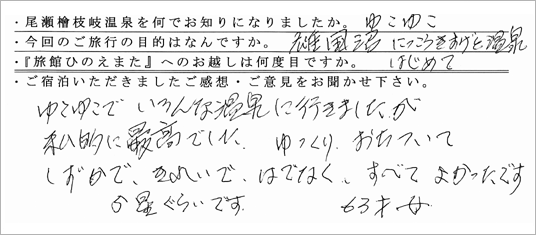 ・尾瀬檜枝岐温泉を何でお知りになりましたか。ゆこゆこ
・今回のご旅行の目的はなんですか。雄国沼 にっこうきすげと温泉
・『旅館ひのえまた』へのお越しは何度目ですか。はじめて
・ご宿泊いただきましたご感想・ご意見をお聞かせ下さい。
ゆこゆこで いろんな温泉に行きましたが
私的に最高でした。ゆっくり おちついて
しずかで、きれいで、はでなく、すべて よかったです
☆5ぐらいです。 63才 女